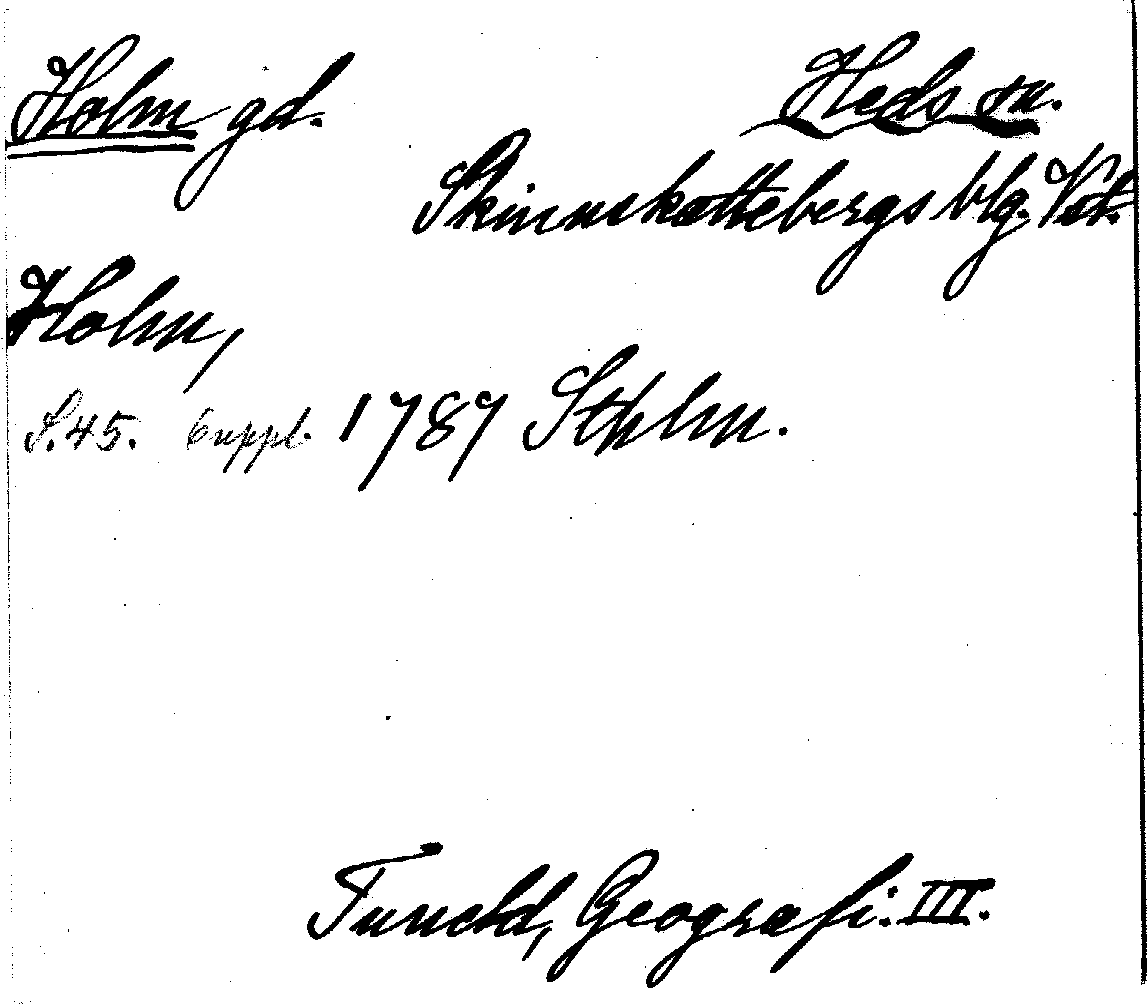 Holm gd. Heds sn.
Skinnskattebergs blg. Vstm.
Holm,
S. 45. Suppl. 1787 Sthlm.
Tuneld, Geografi. III.